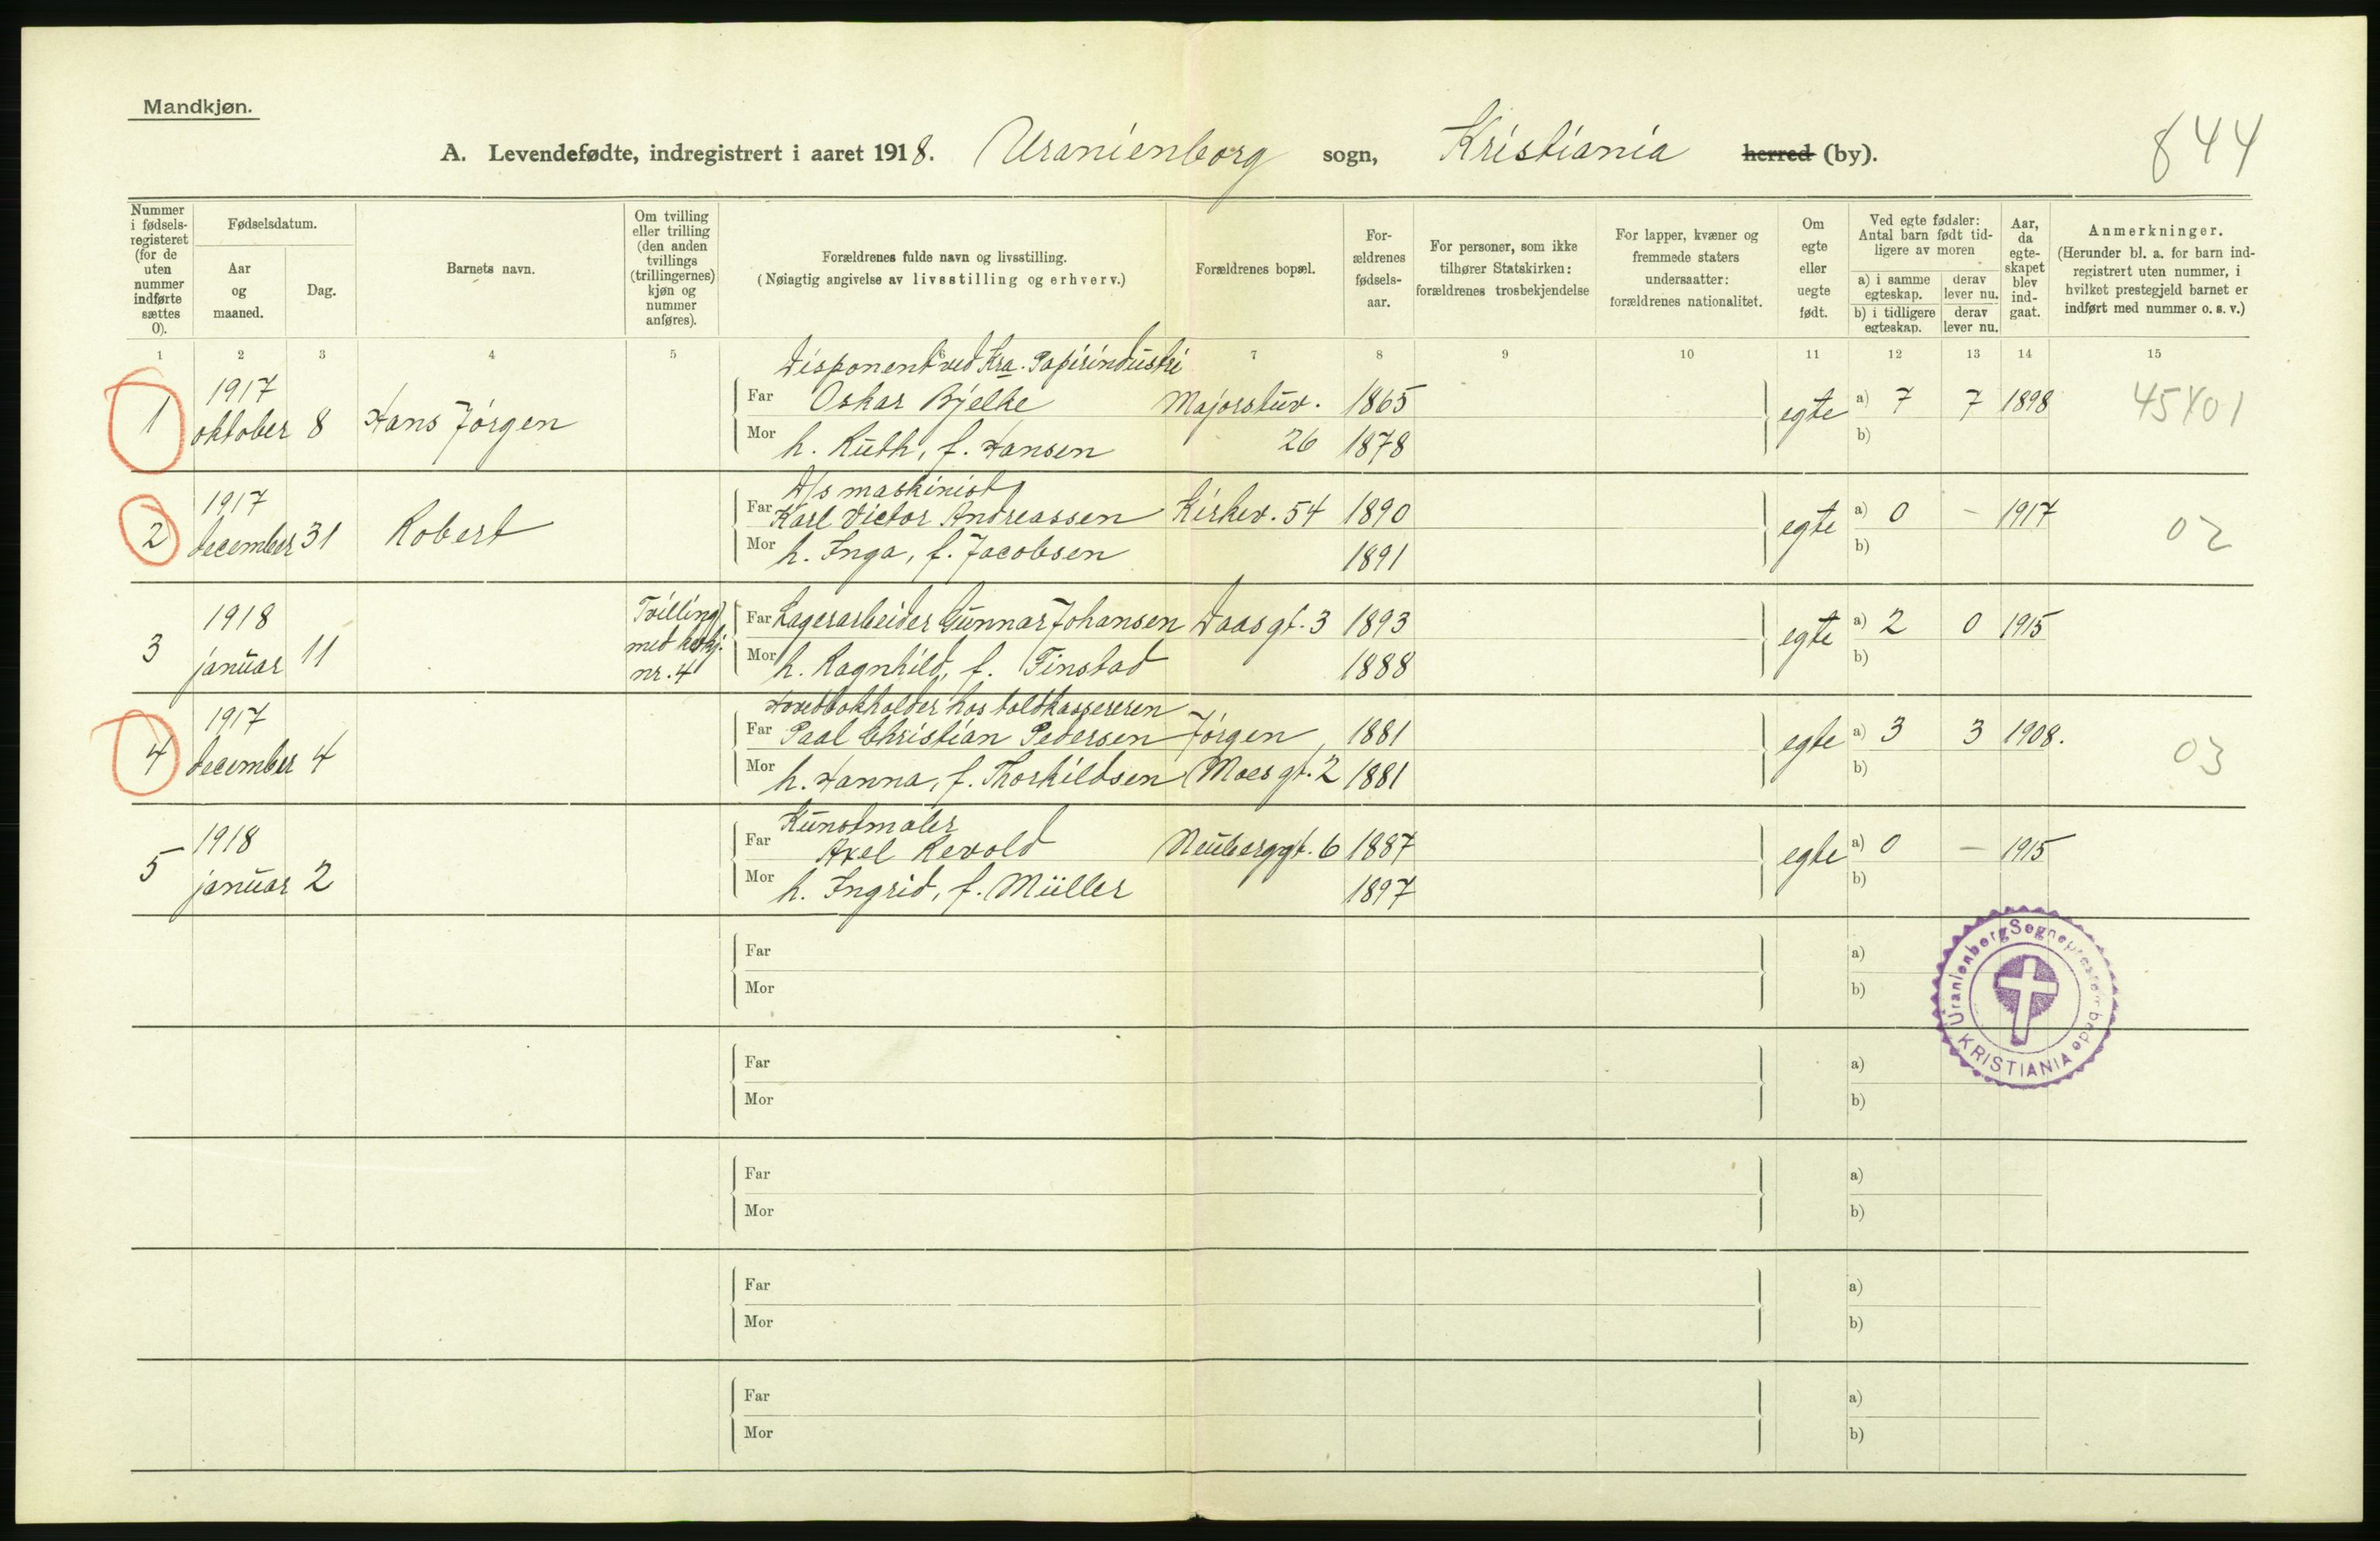 Mandkjøn.
844
A. Levendefødte, indregistrert i aaret 1918. Uranienborg sogn, Kristiania herred (by).
Nummer i fødsels-registeret (for de uten nummer indførte sættes 0).
Fødselsdatum.
Aar og maaned.
Dag.
Barnets navn.
Om tvilling eller trilling (den anden tvillings (trillingernes) kjøn og nummer anføres).
Forældrenes fulde navn og livsstilling.
(Nøiagtig angivelse av livsstilling og erhverv.)
Forældrenes bopæl.
For-ældrenes fødsels-aar.
For personer, som ikke tilhører Statskirken: forældrenes trosbekjendelse
For lapper, kvæner og fremmede staters undersaatter: forældrenes nationalitet.
Om egte eller uegte født.
Ved egte fødsler: Antal barn født tid-ligere av moren
a) i samme egteskap.
derav lever nu.
b) i tidligere egteskap.
derav lever nu.
Aar, da egte-skapet blev ind-gaat.
Anmerkninger.
(Herunder bl. a. for barn ind-registrert uten nummer, i hvilket prestegjeld barnet er indført med nummer o. s. v.)
1 2 3 4 5 6 7 8 9 10 11 12 13 14 15
Disponent ved Kra. Papirindustri
1 1917 oktober 8 Hans Jörgen Far Oskar Bjelke Majorstuv. 1865 egte a) 7 7 1898 45401
Mor h. Ruth, f. Hansen 26 1878 b)
D/s maskinist
2 1917 december 31 Robert Far Karl Victor Andreassen Kirkev. 54 1890 egte a) 0 – 1917 02
Mor h. Inga, f. Jacobsen 1891 b)
3 1918 januar 11 Tvilling med kvkj. nr. 4 Far Lagerarbeider Gunnar Johansen Daasgt. 3 1893 egte a) 2 0 1915
Mor h. Ragnhild, f. Finstad 1888 b)
Hovedbokholder hos toldkassereren
4 1917 december 4 Far Paal Christian Pedersen Jörgen 1881 egte a) 3 3 1908. 03
Mor h. Hanna, f. Thorkildsen Moes gt. 2 1881 b)
Kunstmaler
5 1918 januar 2 Far Axel Revold Neuberggt. 6 1887 egte a) 0 – 1915
Mor h. Ingrid, f. Müller 1897 b)
Far a)
Mor b)
Uranienborg Sogneprestembede KRISTIANIA
Far a)
Mor b)
Far a)
Mor b)
Far a)
Mor b)
Far a)
Mor b)